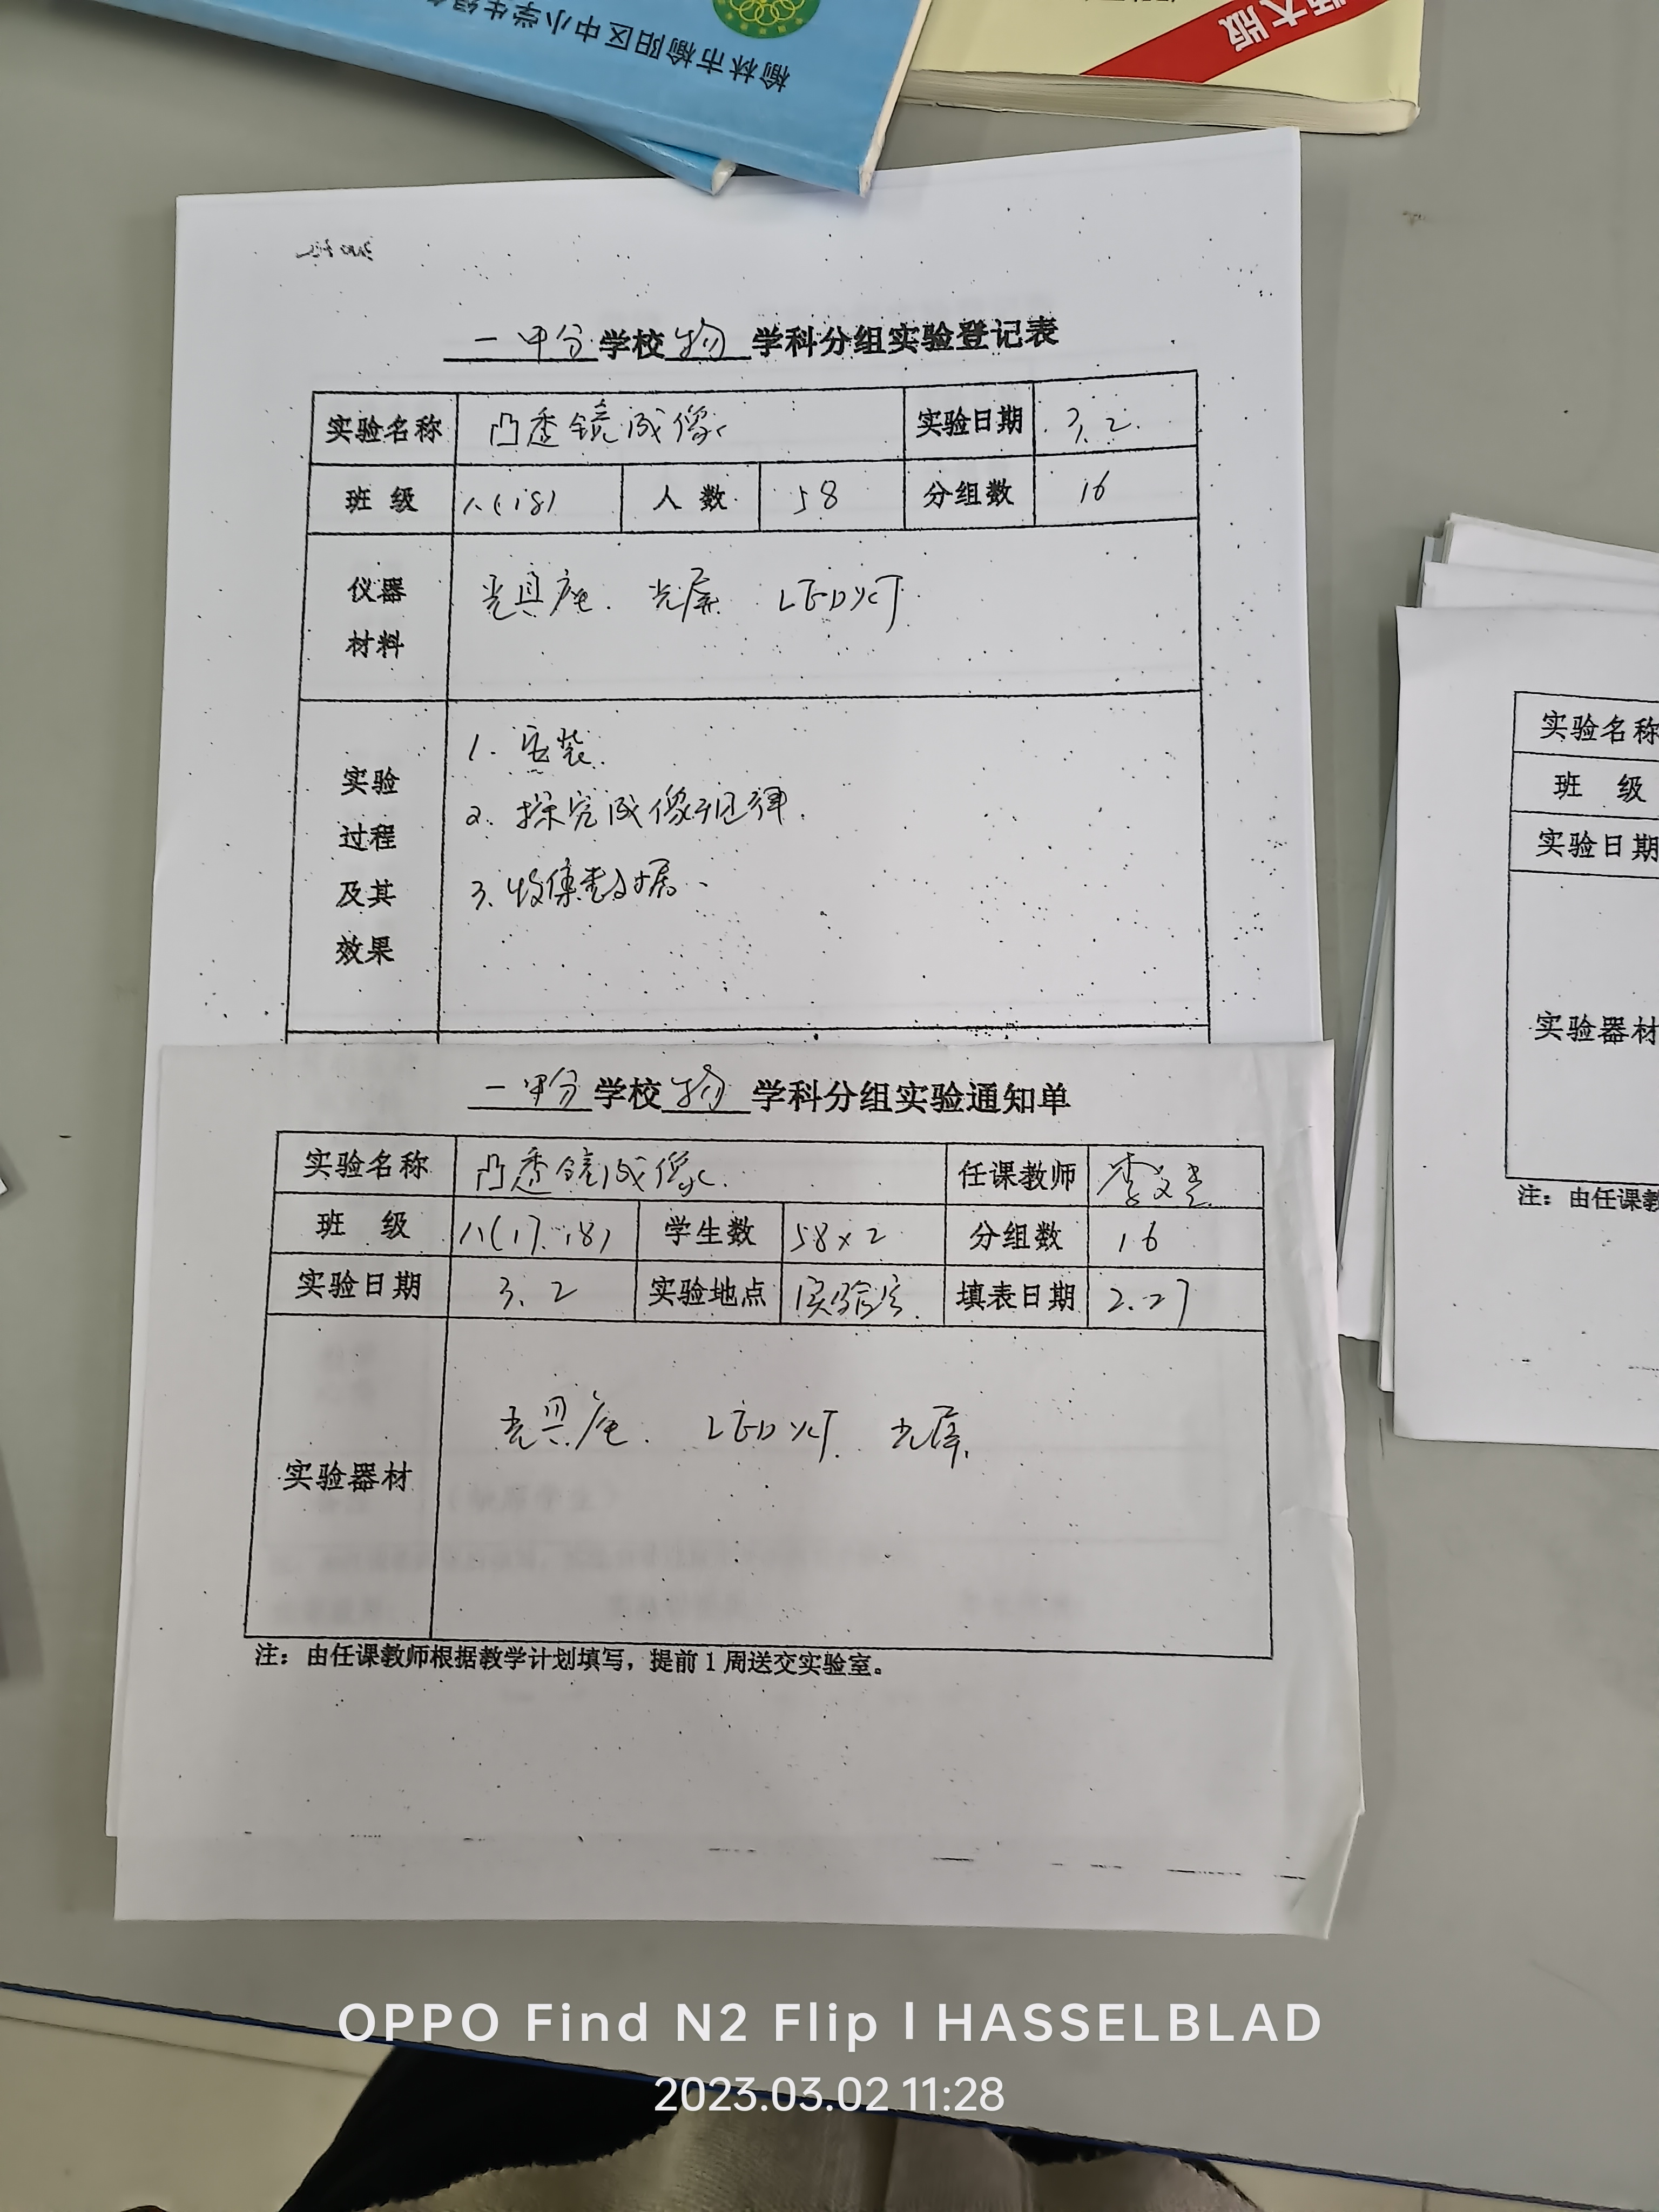 榆林市榆阳区中小学生
师大版
一中分学校物学科分组实验登记表
实验名称 凸透镜成像 实验日期 3.2.
班 级 八(18) 人 数 58 分组数 16
仪器
材料
光具座. 光屏. LED灯.
实验
过程
及其
效果
1. 安装.
2. 探究成像规律.
3. 收集数据.
一中分学校物学科分组实验通知单
实验名称 凸透镜成像. 任课教师 李
班 级 八(17.18) 学生数 58×2 分组数 16
实验日期 3.2 实验地点 实验室. 填表日期 2.27
实验器材 光具座. LED灯. 光屏.
注：由任课教师根据教学计划填写，提前1周送交实验室。
实验名称
班 级
实验日期
实验器材
注：由任课教
OPPO Find N2 Flip | HASSELBLAD
2023.03.02 11:28